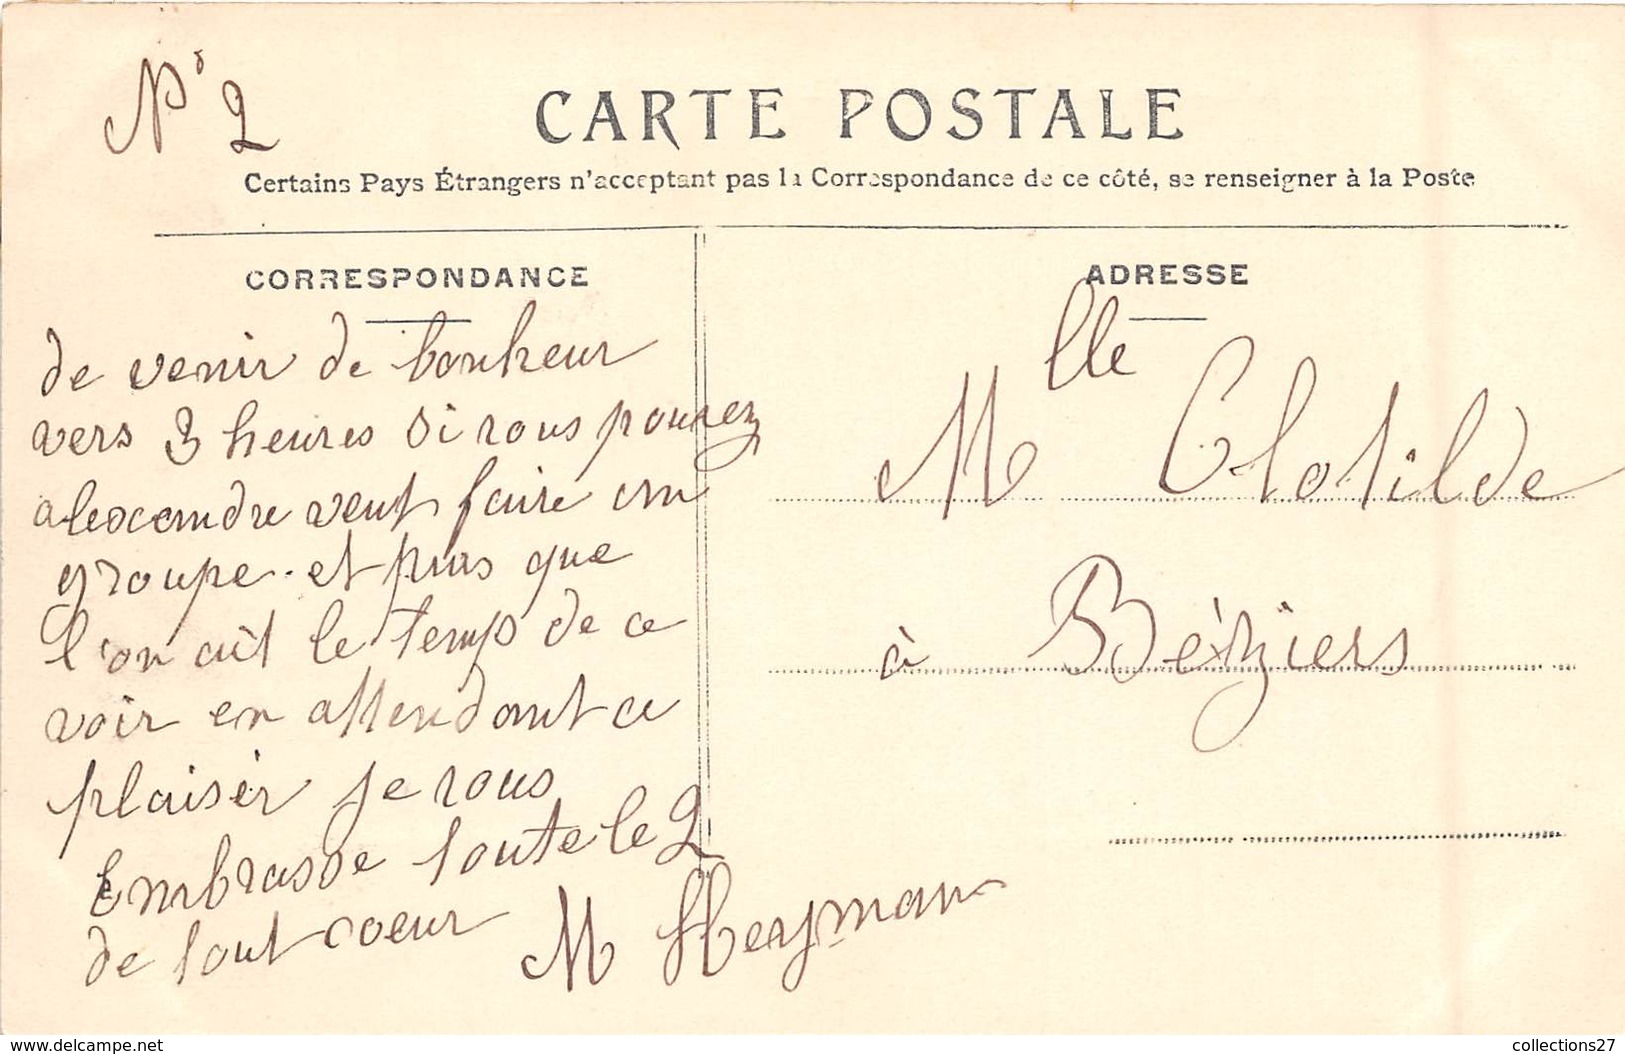 N° 2
CARTE POSTALE
Certains Pays Étrangers n'acceptant pas la Correspondance de ce côté, se renseigner à la Poste
CORRESPONDANCE
de venir de bonheur
vers 3 heures si vous pouvez
alexcendre veut faire un
groupe. et puis que
l'on ait le temps de ce
voir en attendant ce
plaisir je vous
Embrasse toute le 2
de tout coeur M Heyman
ADRESSE
Mlle Clotilde
à Béziers
www.delcampe.net
collections27